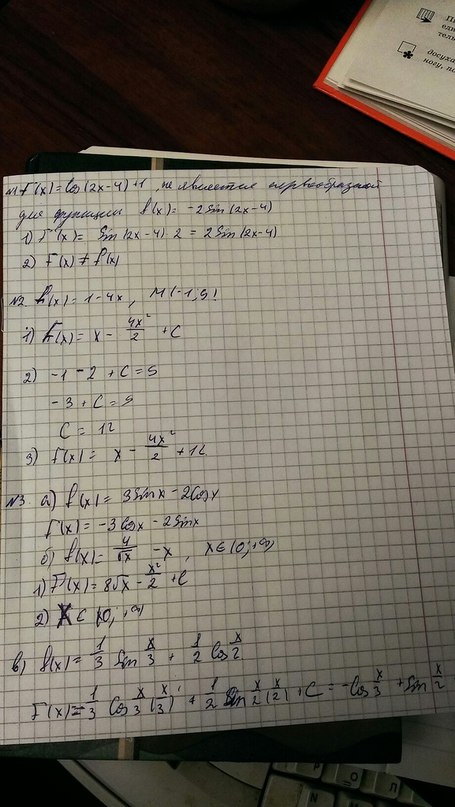 досуха
ногу, по
№1 F(x) = cos(2x-4)+1, не является первообразной
для функции f(x) = -2sin(2x-4)
1) F'(x) = sin(2x-4)·2 = 2sin(2x-4)
2) F(x) ≠ f(x)
№2. f(x) = 1-4x, M(-1;9)
1) F(x) = x - 4x²/2 + C
2) -1 -2 + C = 9
-3 + C = 9
C = 12
3) F(x) = x - 4x²/2 + 12
№3. а) f(x) = 3sinx - 2cosx
F(x) = -3cosx - 2sinx
б) f(x) = 4/√x - x, x∈(0;+∞)
1) F(x) = 8√x - x²/2 + C
2) X ∈ (0;+∞)
в) f(x) = 1/3 sin x/3 + 1/2 cos x/2
F(x) = -1/3 cos x/3 (x/3)' + 1/2 sin x/2 (x/2)' + C = -cos x/3 + sin x/2